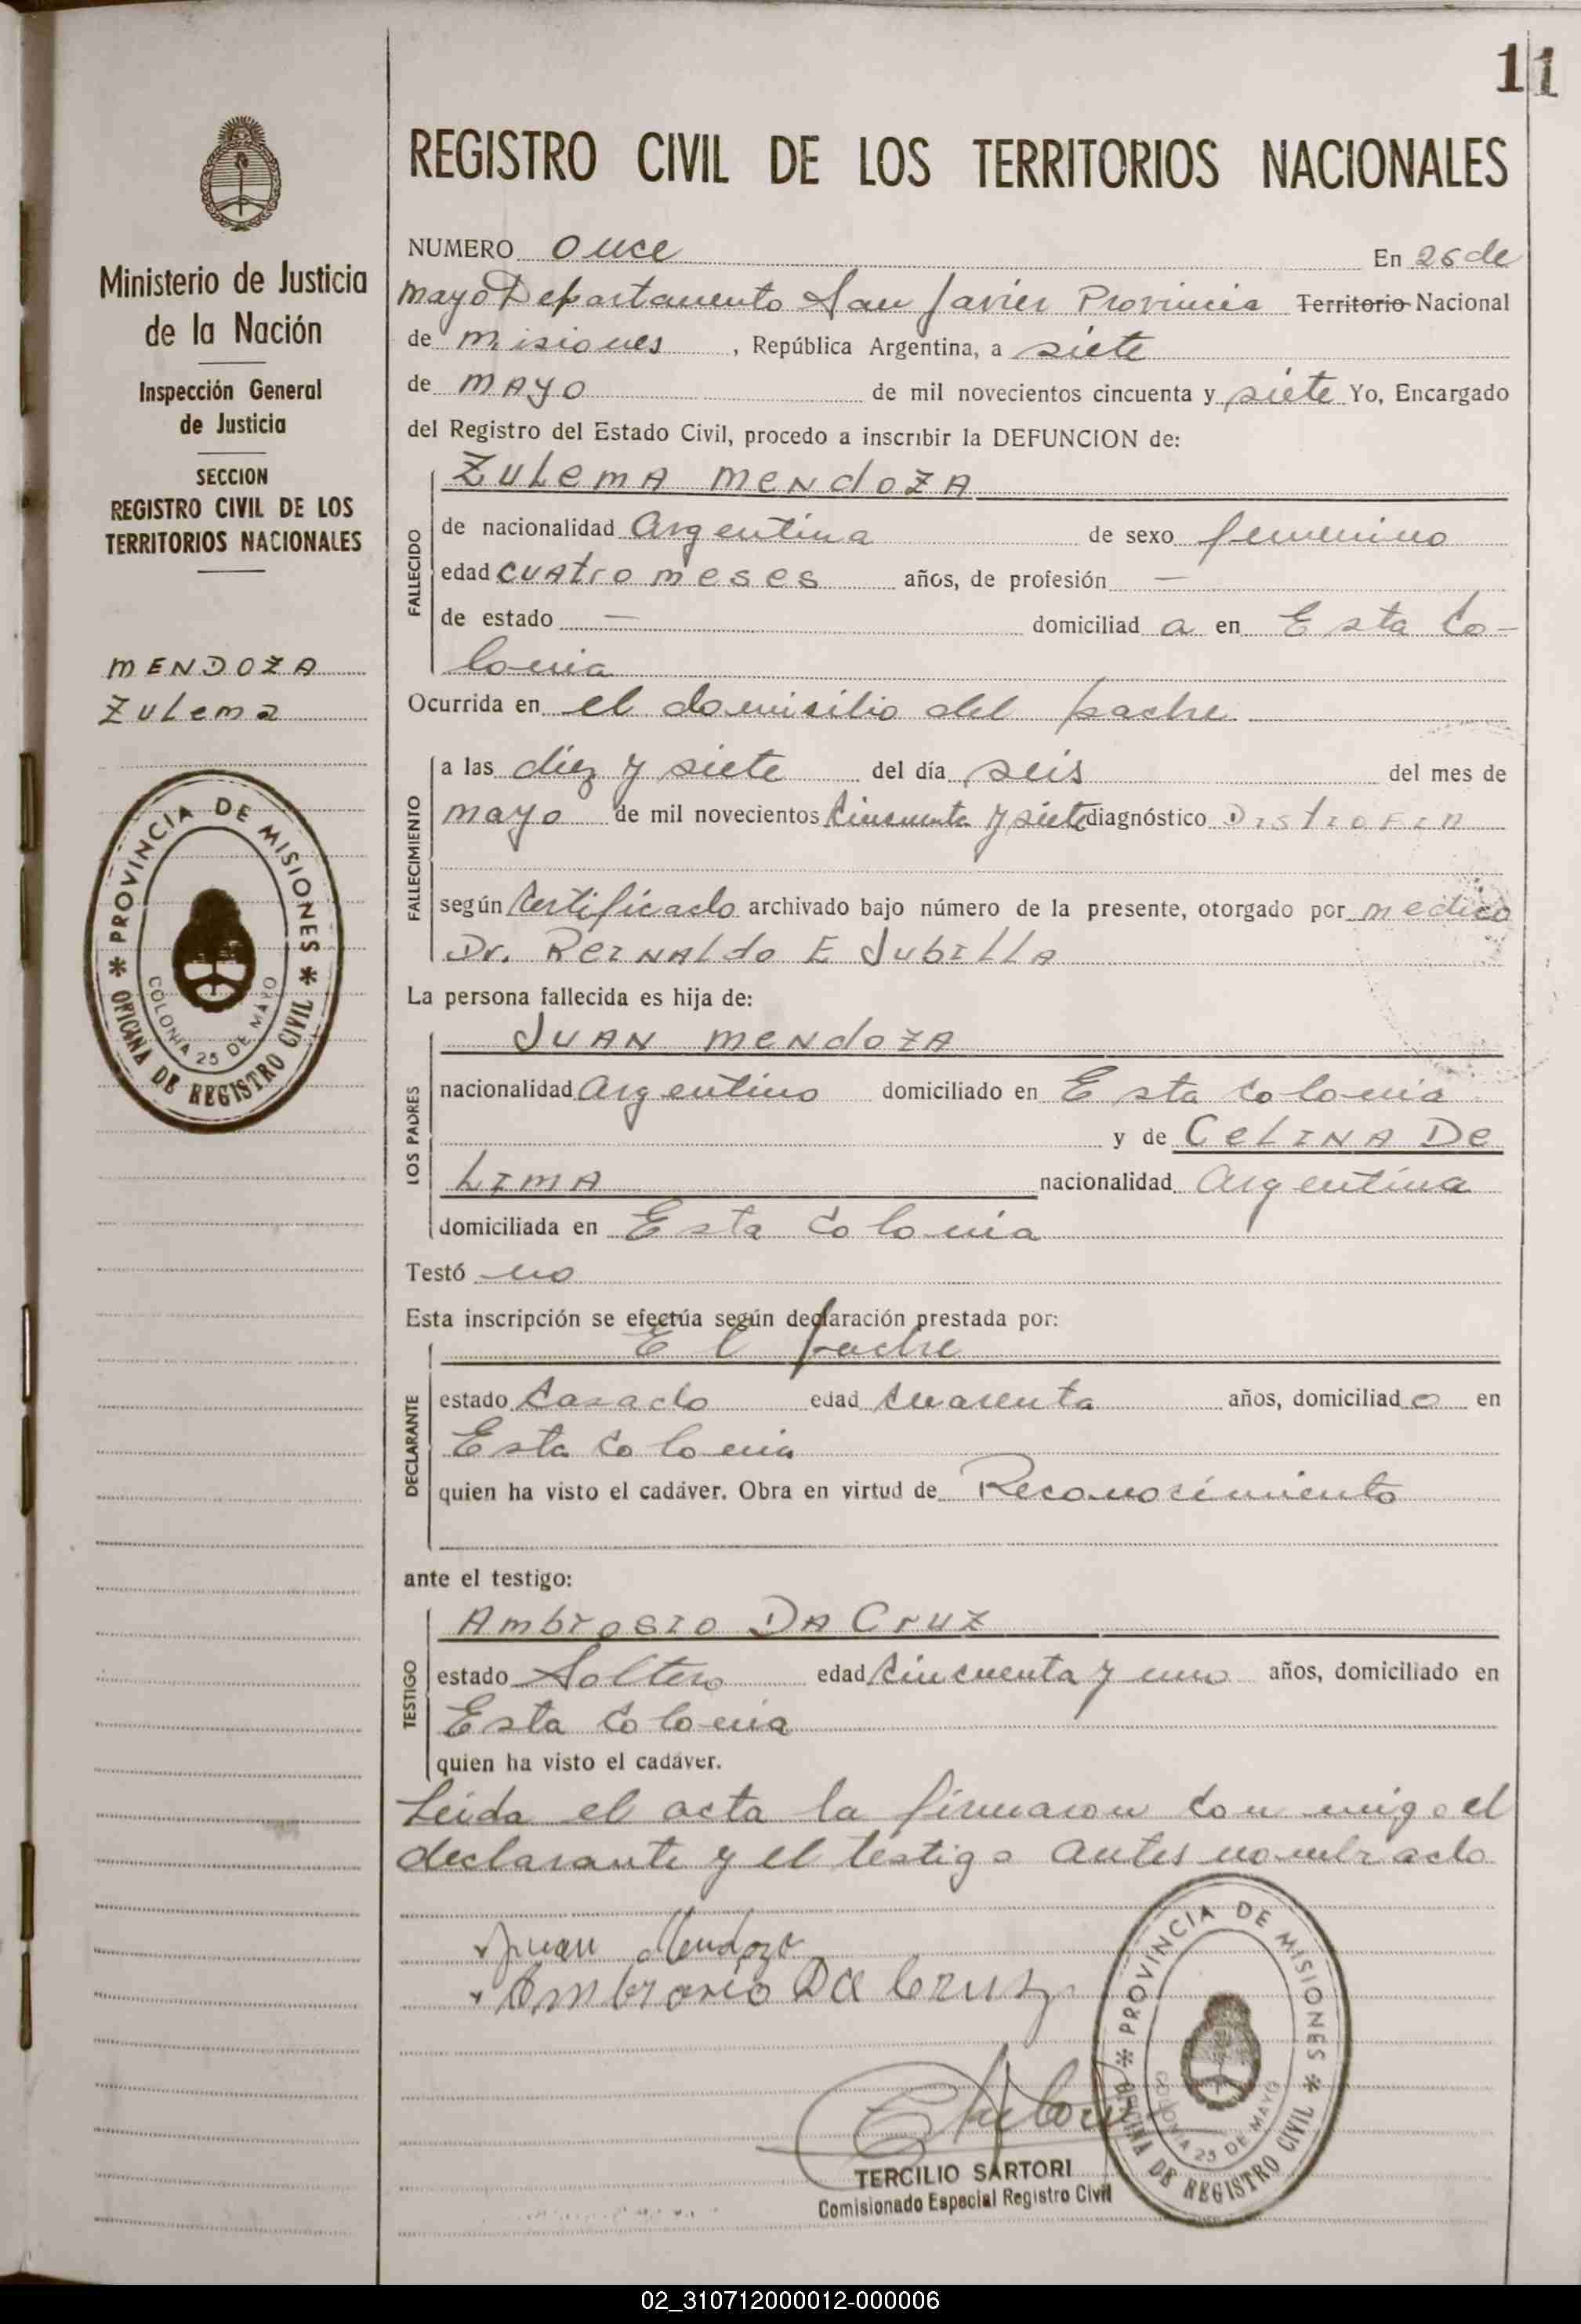 11
REGISTRO CIVIL DE LOS TERRITORIOS NACIONALES
Ministerio de Justicia
de la Nación
Inspección General
de Justicia
SECCION
REGISTRO CIVIL DE LOS
TERRITORIOS NACIONALES
MENDOZA
Zulema
PROVINCIA DE MISIONES
COLONIA 25 DE MAYO
OFICINA DE REGISTRO CIVIL
NUMERO Once En 25 de
mayo Departamento San Javier Provincia Territorio Nacional
de misiones, República Argentina, a siete
de mayo de mil novecientos cincuenta y siete Yo, Encargado
del Registro del Estado Civil, procedo a inscribir la DEFUNCION de:
Zulema Mendoza
FALLECIDO
de nacionalidad Argentina de sexo femenino
edad cuatro meses años, de profesión —
de estado — domiciliad a en Esta Co-
lonia
Ocurrida en el domisilio del padre
FALLECIMIENTO
a las diez y siete del día seis del mes de
mayo de mil novecientos Cincuenta y siete diagnóstico Distrofia
según Certificado archivado bajo número de la presente, otorgado por medico
Dr. Reinaldo E Jubilla
La persona fallecida es hija de:
LOS PADRES
Juan Mendoza
nacionalidad Argentino domiciliado en Esta Colonia
y de Celina De
Lima nacionalidad Argentina
domiciliada en Esta Colonia
Testó no
Esta inscripción se efectúa según declaración prestada por:
DECLARANTE
El padre
estado Casado edad Cuarenta años, domiciliad o en
Esta Colonia
quien ha visto el cadáver. Obra en virtud de Reconosimiento
ante el testigo:
TESTIGO
Ambrosio Da Cruz
estado Soltero edad Cincuenta y uno años, domiciliado en
Esta Colonia
quien ha visto el cadáver.
Leida el acta la firmaron con migo el
declarante y el testigo antes nombrado
Juan Mendoza
Ambrosio Da Cruz
PROVINCIA DE MISIONES
COLONIA 25 DE MAYO
OFICINA DE REGISTRO CIVIL
TERCILIO SARTORI
Comisionado Especial Registro Civil
02_310712000012-000006